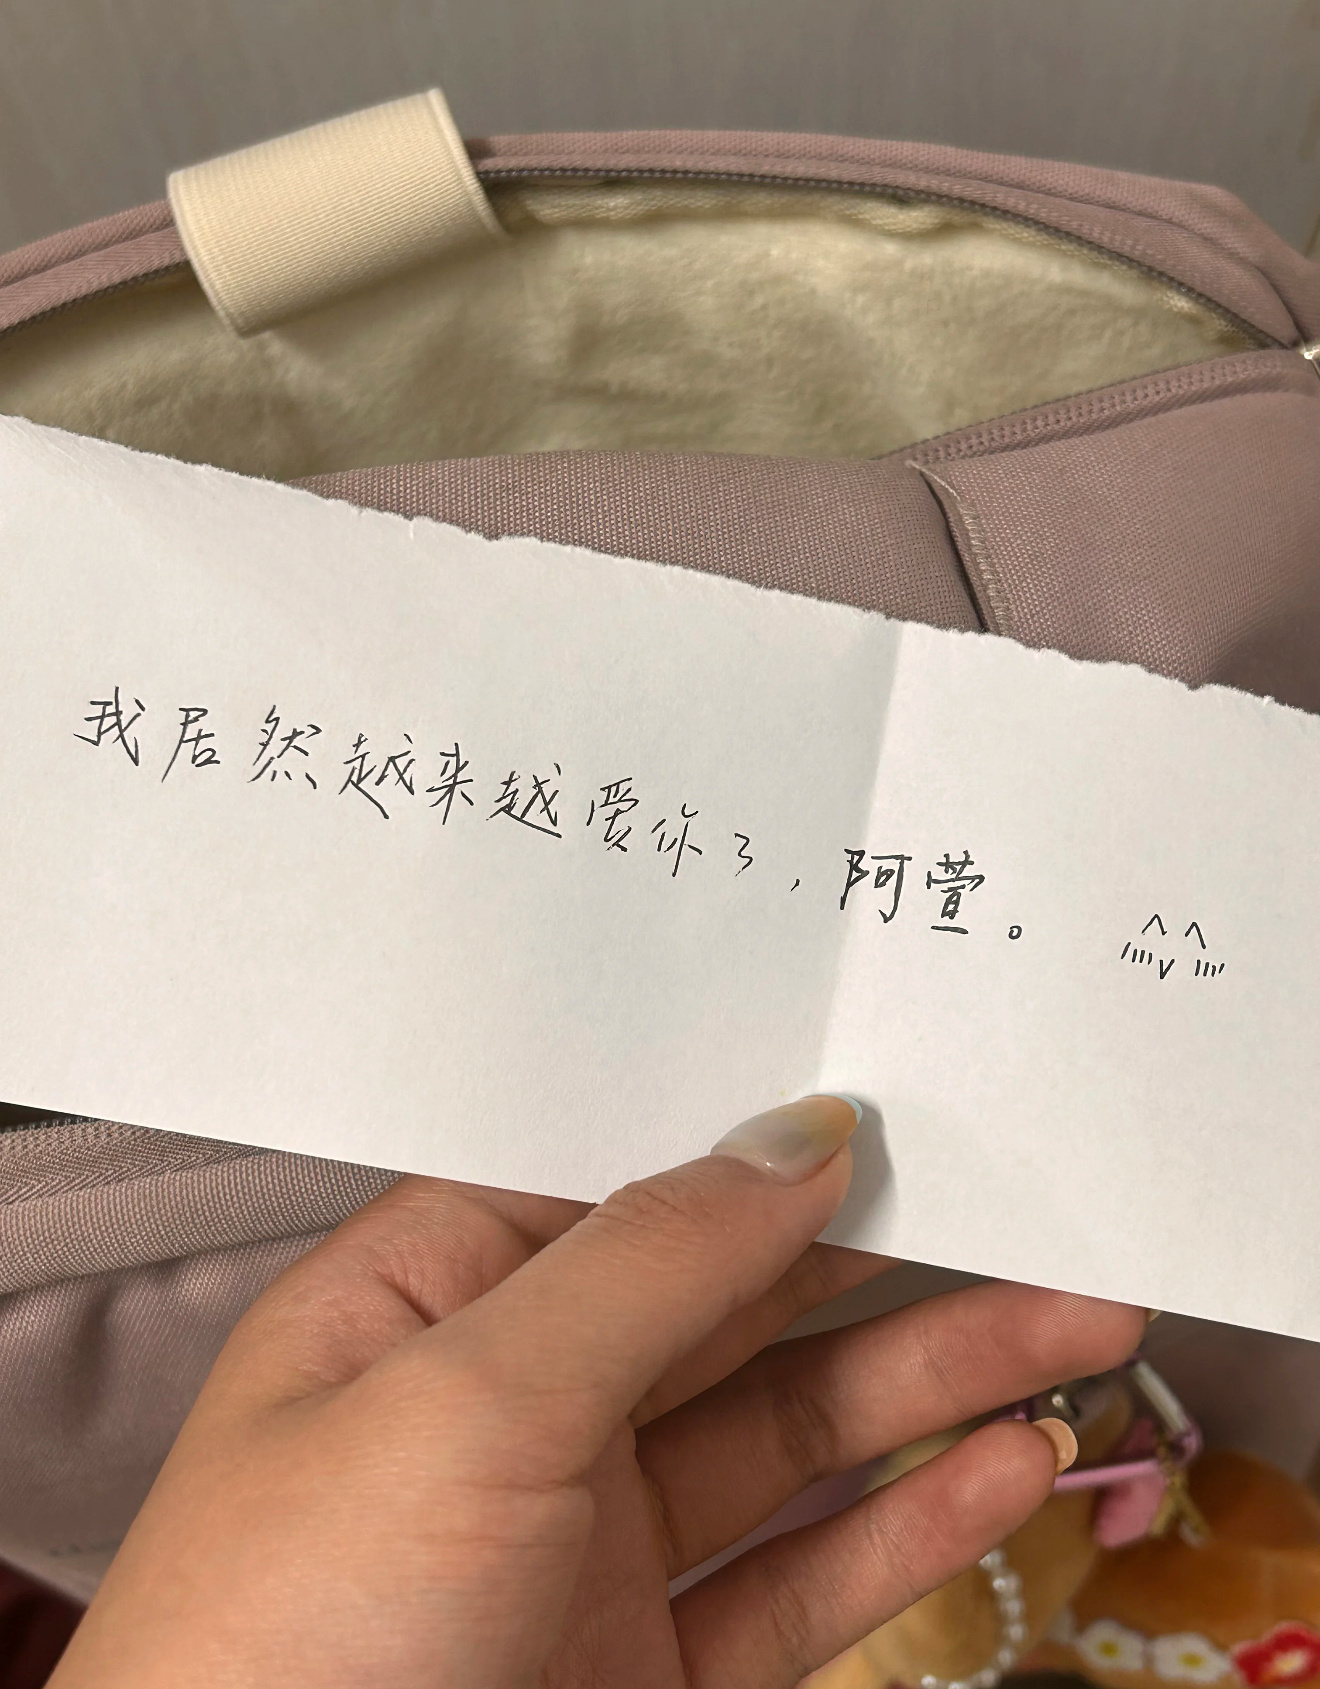 我居然越来越爱你了，阿萱。